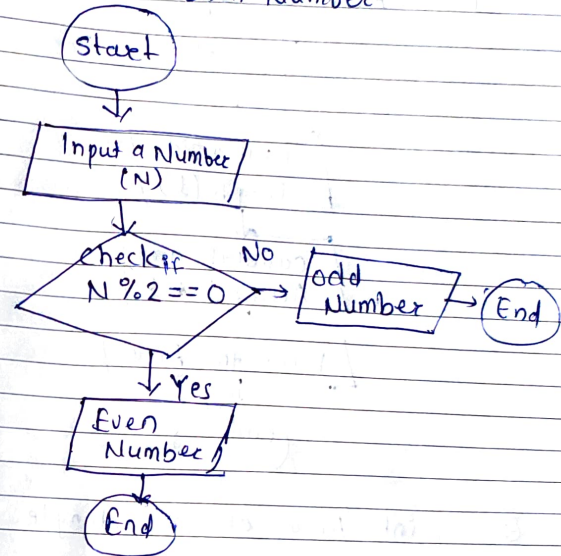 Number
Start
Input a Number
(N)
Check if
N%2==0
No
odd
Number
End
Yes
Even
Number
End